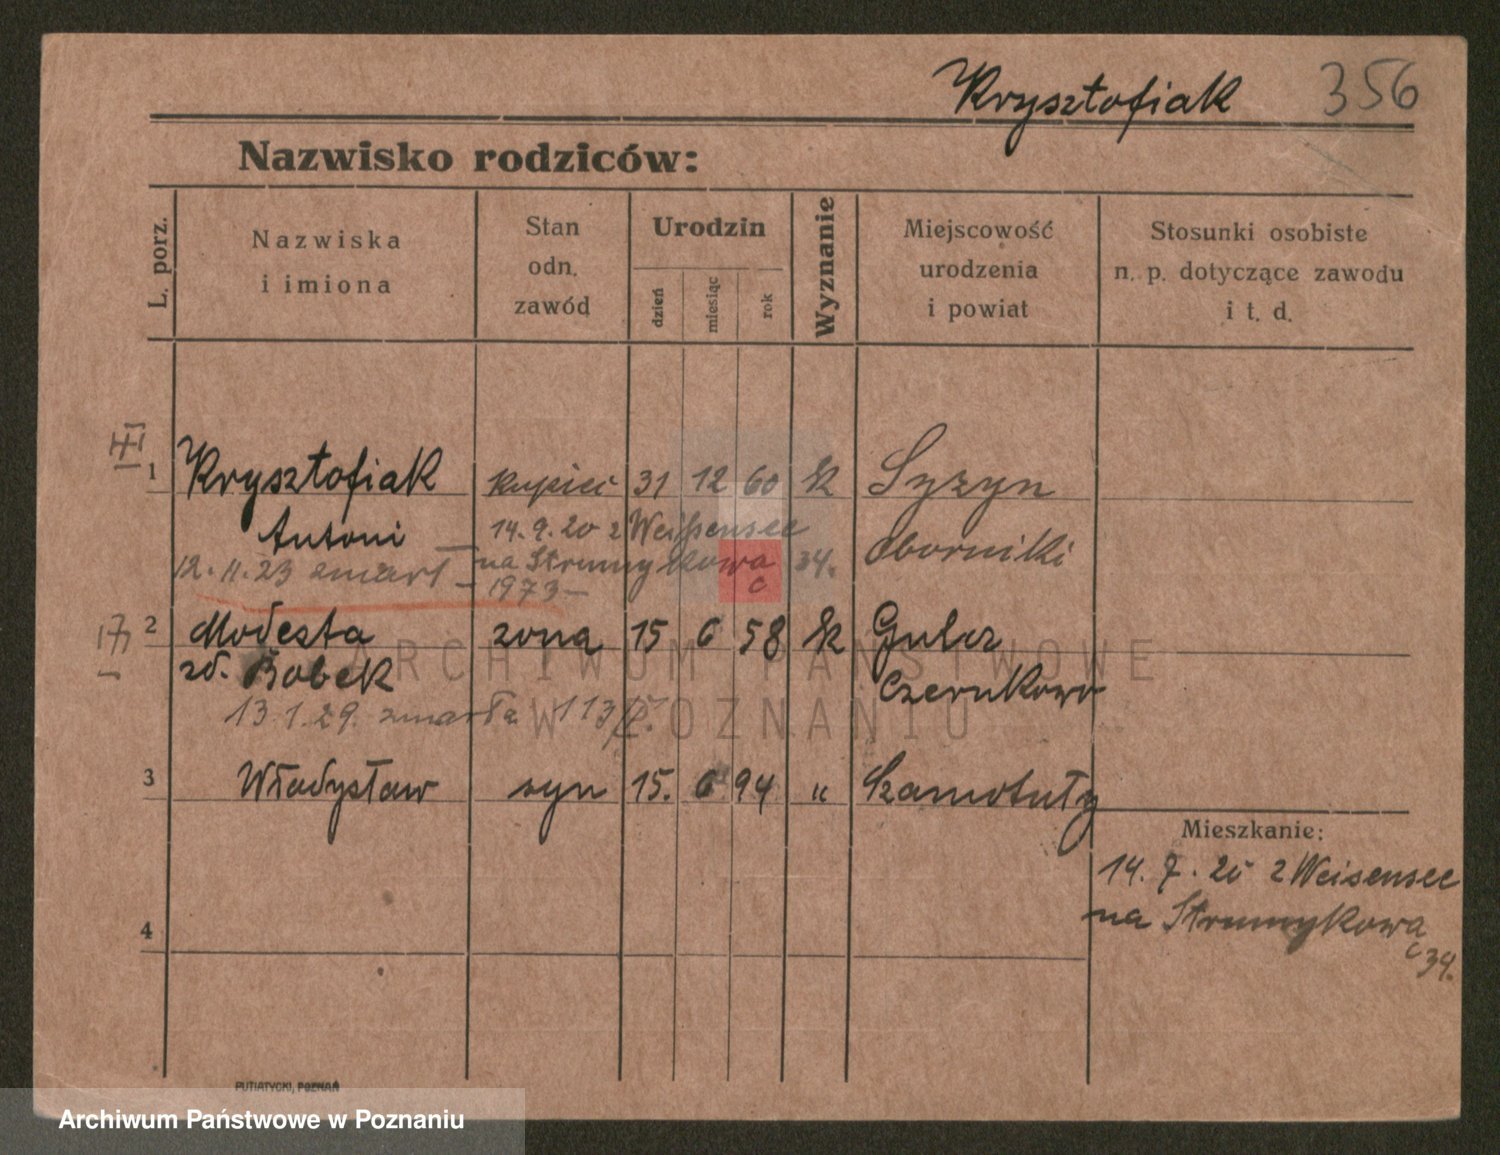 Krysztofiak 356
Nazwisko rodziców:
L. porz.
Nazwiska
i imiona
Stan
odn.
zawód
Urodzin
dzień
miesiąc
rok
Wyznanie
Miejscowość
urodzenia
i powiat
Stosunki osobiste
n. p. dotyczące zawodu
i t. d.
1 Krysztofiak kupiec 31 12 60 k
Antoni 14.9.20 z Weißensee Oborniki
12.11.23 zmarł – na Strumykowa 34.
1973 – c
2 Modesta żona 15 6 58 k
zd. Bobek
13.1.29. zmarła 113/
3 Władysław syn 15. 6 94 " Szamotuły
4
Mieszkanie:
14.7.20 z Weisensee
na Strumykowa
c 34.
ARCHIWUM PAŃSTWOWE
W POZNANIU
PUTIATYCKI, POZNAŃ
Archiwum Państwowe w Poznaniu